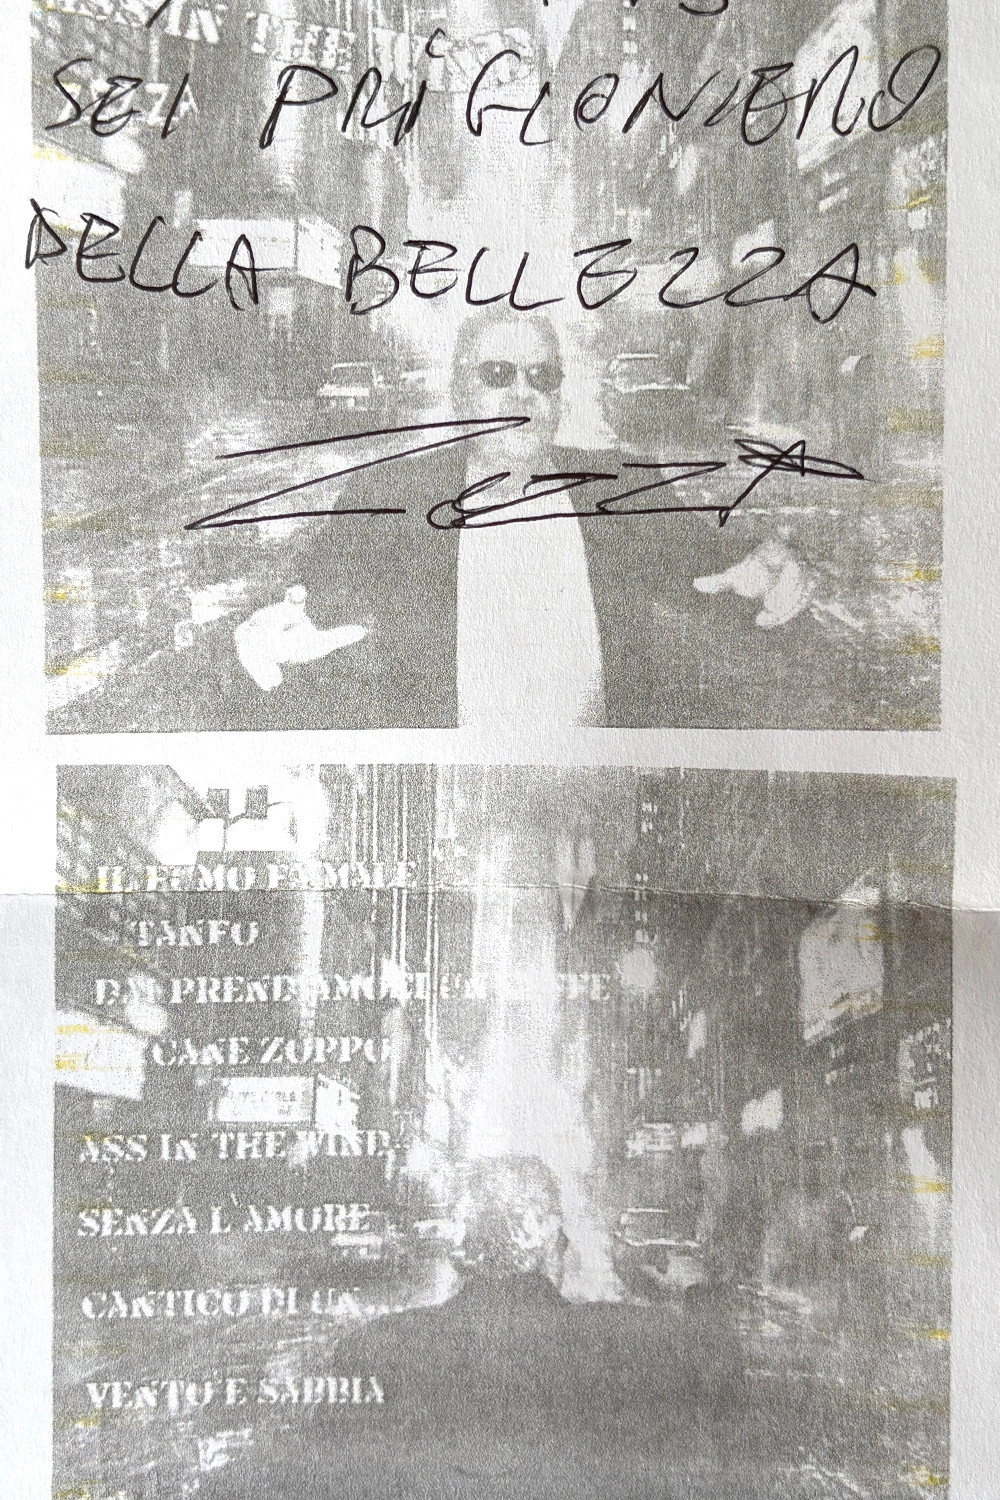 IN THE WIND
SEI PRIGIONIERO
DELLA BELLEZZA
Zezza
IL FUMO FA MALE
TANFO
DAI PRENDIAMOCI
CANE ZOPPO
ASS IN THE WIND
SENZA L'AMORE
CANTICO DI UN...
VENTO E SABBIA